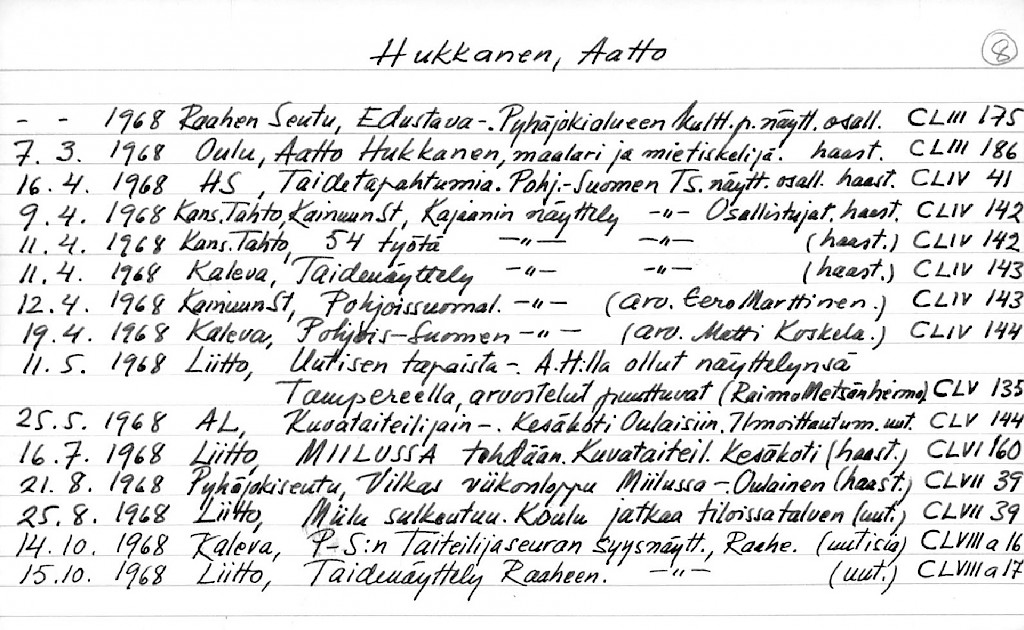 Hukkanen, Aatto 8
- - 1968 Raahen Seutu, Edustava -. Pyhäjokialueen Kultt.p. näytt. osall. CLIII 175
7. 3. 1968 Oulu, Aatto Hukkanen, maalari ja mietiskelijä. haast. CLIII 186
16. 4. 1968 HS, Taidetapahtumia. Pohj.-Suomen TS. näytt. osall. haast. CLIV 41
9. 4. 1968 Kans.Tahto, KainuunSt, Kajaanin näyttely -"- Osallistujat. haast. CLIV 142
11. 4. 1968 Kans.Tahto, 54 työtä -"- -"- (haast.) CLIV 142
11. 4. 1968 Kaleva, Taidenäyttely -"- -"- (haast.) CLIV 143
12. 4. 1968 KainuunSt, Pohjoissuomal. -"- (arv. Eero Marttinen.) CLIV 143
19. 4. 1968 Kaleva, Pohjois-Suomen -"- (arv. Matti Koskela.) CLIV 144
11. 5. 1968 Liitto, Uutisen tapaista -. A.H:lla ollut näyttelynsä
Tampereella, arvostelut puuttuvat (Raimo Metsänheimo). CLV 135
25. 5. 1968 AL, Kuvataiteilijain -. Kesäkoti Oulaisiin. Ilmoittautum. uut. CLV 144
16. 7. 1968 Liitto, MIILUSSA tehdään. Kuvataiteil. Kesäkoti (haast.) CLVI 160
21. 8. 1968 Pyhäjokiseutu, Vilkas viikonloppu Miilussa -. Oulainen (haast.) CLVII 39
25. 8. 1968 Liitto, Miilu sulkeutuu. Koulu jatkaa tiloissa talven (uut.) CLVII 39
14. 10. 1968 Kaleva, P-S:n Taiteilijaseuran Syysnäytt., Raahe. (uutisia) CLVIII a 16
15. 10. 1968 Liitto, Taidenäyttely Raaheen. -"- (uut.) CLVIII a 17